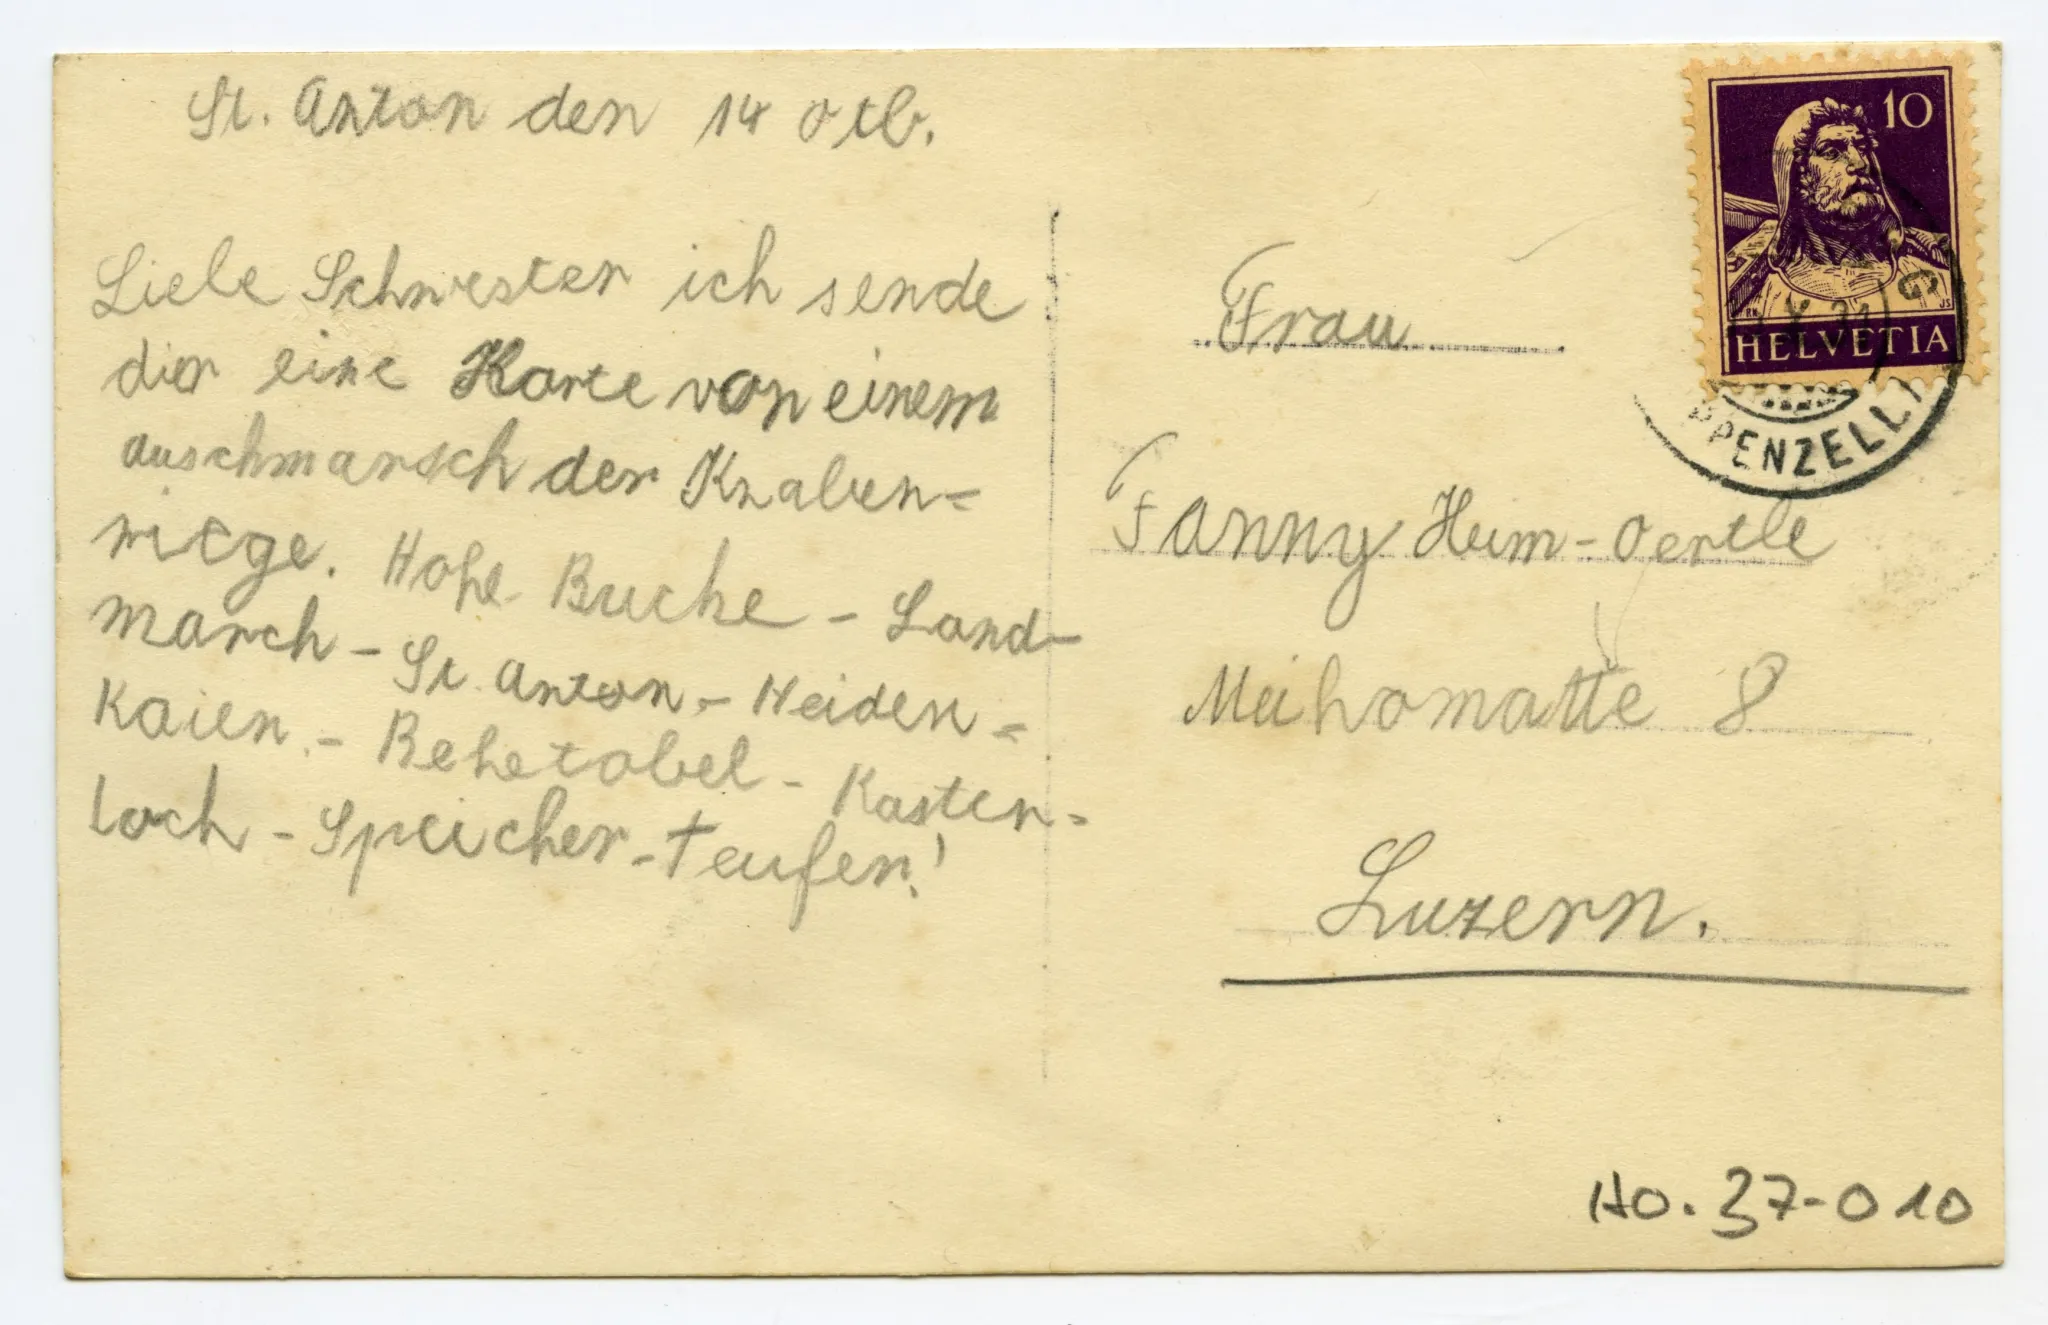 St. Anton den 14 Otb.
Liebe Schwester ich sende
dir eine Karte von einem
auschmarsch der Knaben=
riege. Hohe Buche - Land-
march - St. Anton - Heiden =
Kaien. - Rehetobel - Kasten=
loch - Speicher - Teufen!
10
HELVETIA
PPENZELL
Frau
Fanny Hum-Oertle
Maihomatte 8
Luzern.
HO. 37-010